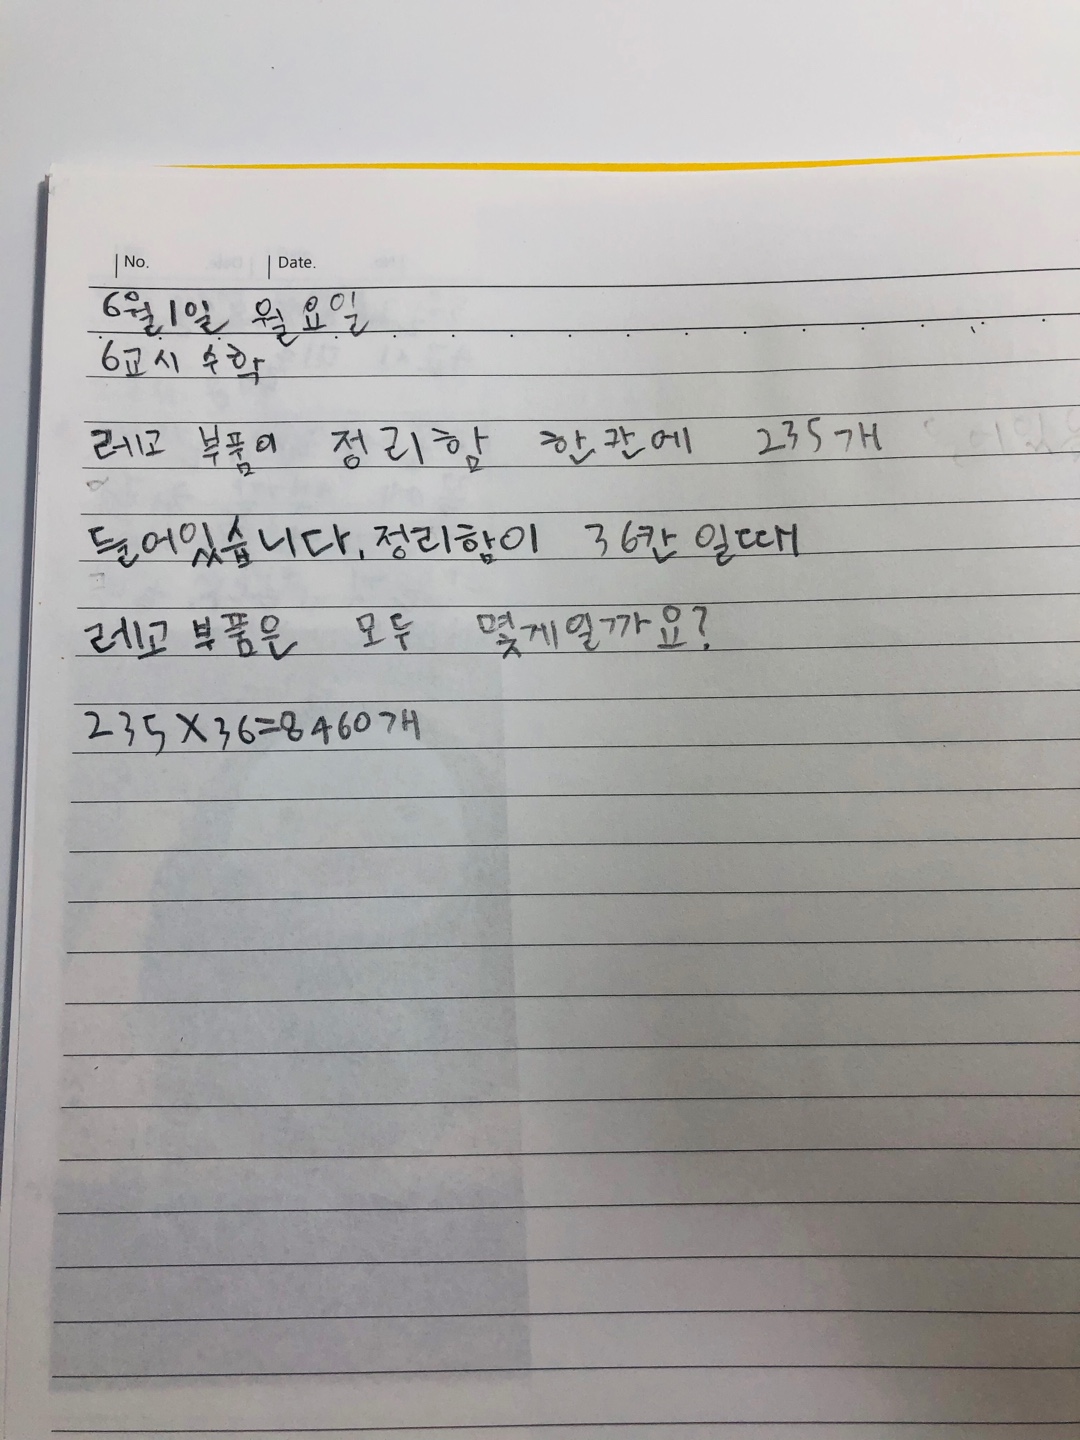 No. Date.
6월1일 월요일
6교시 수학
레고 부품이 정리함 한칸에 235개
들어있습니다. 정리함이 36칸 일때
레고 부품은 모두 몇게일까요?
235×36=8460개